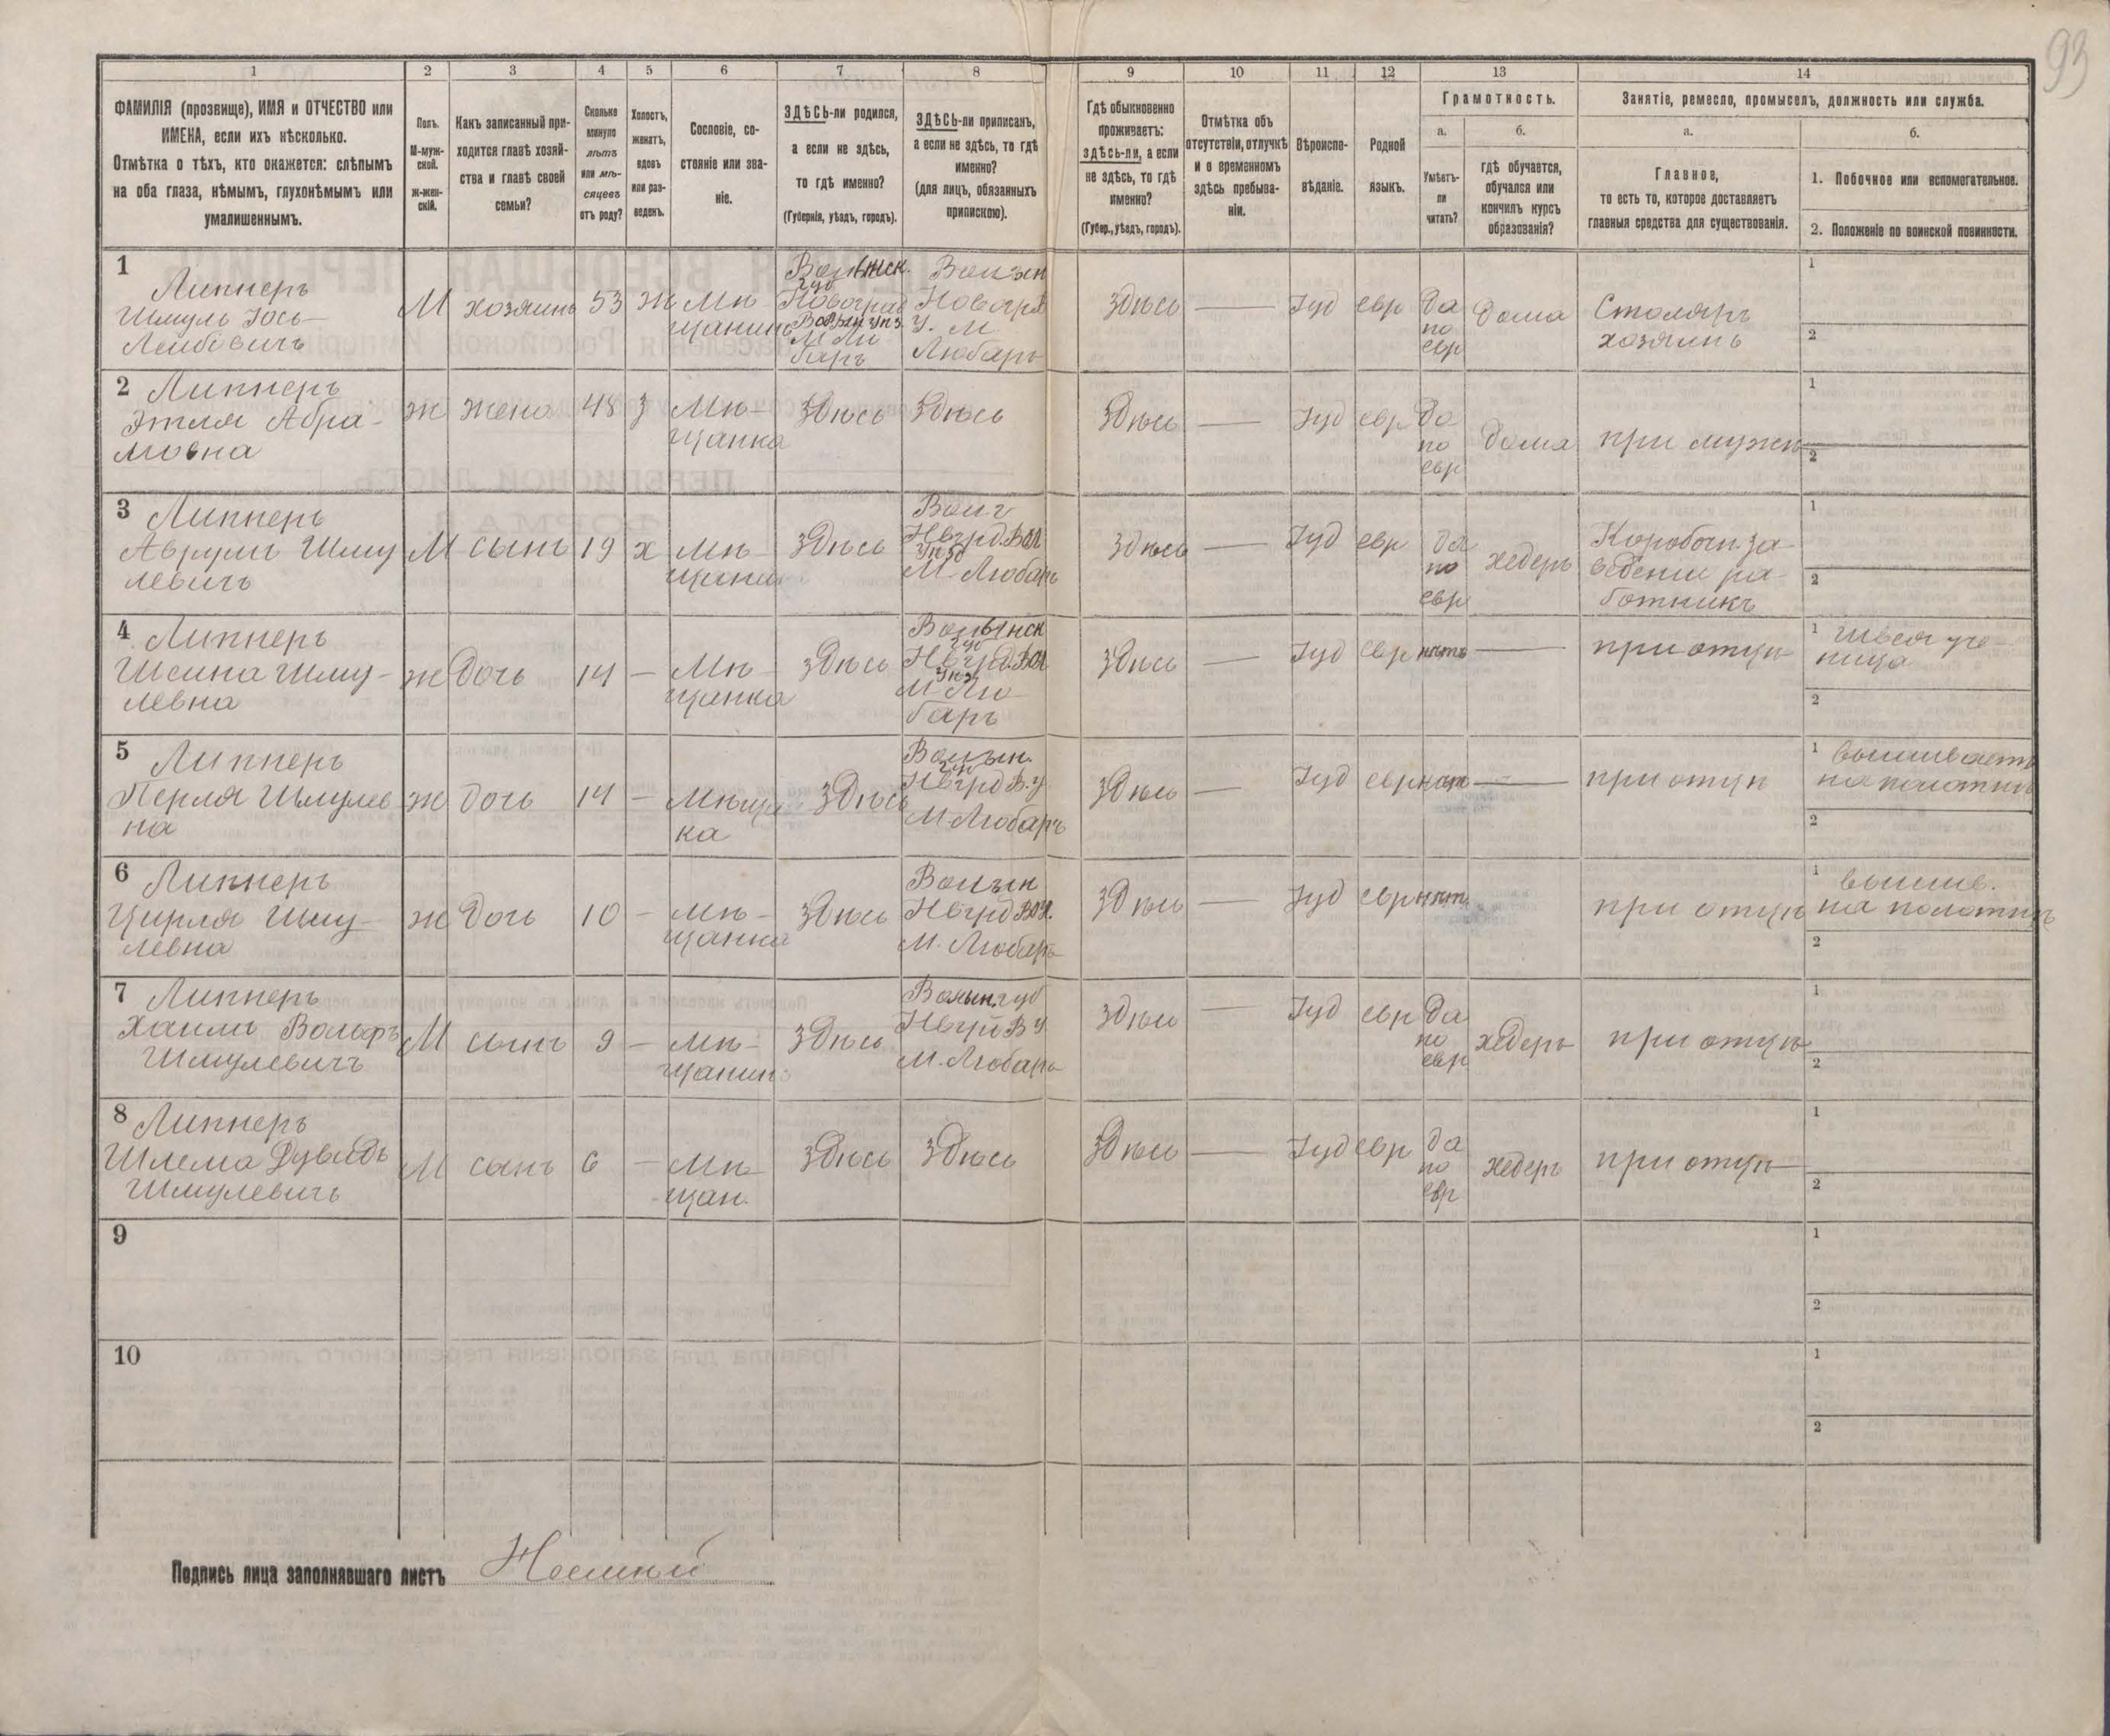 93
1 2 3 4 5 6 7 8 9 10 11 12 13 14
ФАМИЛІЯ (прозвище), ИМЯ и ОТЧЕСТВО или
ИМЕНА, если ихъ нѣсколько.
Отмѣтка о тѣхъ, кто окажется: слѣпымъ
на оба глаза, нѣмымъ, глухонѣмымъ или
умалишеннымъ.
Полъ.
М-муж-
ской.
ж-жен-
скій.
Какъ записанный при-
ходится главѣ хозяй-
ства и главѣ своей
семьи?
Сколько
минуло
лѣтъ
или мѣ-
сяцевъ
отъ роду?
Холостъ,
женатъ,
вдовъ
или раз-
веденъ.
Сословіе, со-
стояніе или зва-
ніе.
ЗДѢСЬ-ли родился,
а если не здѣсь,
то гдѣ именно?
(Губернія, уѣздъ, городъ).
ЗДѢСЬ-ли приписанъ,
а если не здѣсь, то гдѣ
именно?
(для лицъ, обязанныхъ
припискою).
Гдѣ обыкновенно
проживаетъ:
здѣсь-ли, а если
не здѣсь, то гдѣ
именно?
(Губер., уѣздъ, городъ).
Отмѣтка объ
отсутствіи, отлучкѣ
и о временномъ
здѣсь пребыва-
ніи.
Вѣроиспо-
вѣданіе.
Родной
языкъ.
Грамотность.
а.
Умѣетъ-
ли
читать?
б.
гдѣ обучается,
обучался или
кончилъ курсъ
образованія?
Занятіе, ремесло, промыселъ, должность или служба.
а.
Главное,
то есть то, которое доставляетъ
главныя средства для существованія.
б.
1. Побочное или вспомогательное.
2. Положеніе по воинской повинности.
1
Липнеръ
Шмуль Іось-
Лейбовичъ
М
хозяинъ
53
ж
Мѣ-
щанинъ
Волынск.
губ
Новоград
Волын уѣз.
М Лю
баръ
Волын
Новогра
У. М
Любаръ
Здѣсь
—
Іуд
евр
Да
по
евр
дома
Столяръ
хозяинъ
1
2
2
Липнеръ
Этля Абра-
мовна
ж
жена
48
з
Мѣ-
щанка
Здѣсь
Здѣсь
Здѣсь
—
Іуд
евр
Да
по
евр
дома
при мужѣ
1
2
3
Липнеръ
Аврумъ Шму
левичъ
М
сынъ
19
х
Мѣ-
щанин
Здѣсь
Нвгрд. Вол
уѣзд
М. Любаръ
Здѣсь
—
Іуд
евр
да
по
евр
хедеръ
ра-
ботникъ
1
2
4
Липнеръ
Шейна Шму-
левна
ж
дочь
14
—
Мѣ-
щанка
Здѣсь
Волынск
губ
Нвгрд. Вол
уѣз
М Лю-
баръ
Здѣсь
—
Іуд
евр
нѣтъ
—
при отцѣ
1 швея уче-
ница
2
5
Липнеръ
Перля Шмулев
на
ж
дочь
14
—
Мѣща
ка
Здѣсь
Волын.
Нвгрд В. у.
М Любаръ
Здѣсь
—
Іуд
евр
нѣтъ
—
при отцѣ
1 вышиваетъ
на полотнѣ
2
6
Липнеръ
Цирля Шму-
левна
ж
дочь
10
—
Мѣ-
щанка
Здѣсь
Волын
Нвгрд Вол.
М. Любаръ
Здѣсь
—
Іуд
евр
нѣтъ
при отцѣ
1 вышив.
на полотнѣ
2
7
Липнеръ
Хаимъ Вольфъ
Шмулевичъ
М
сынъ
9
—
Мѣ-
щанин
Здѣсь
Волын. губ
Нвгрд В у
М. Любаръ
Здѣсь
—
Іуд
евр
Да
по
евр
хедеръ
при отцѣ
1
2
8
Липнеръ
Шлема Дувидъ
Шмулевичъ
М
сынъ
6
—
Мѣ-
щан.
Здѣсь
Здѣсь
Здѣсь
—
Іуд
евр
да
по
евр
хедеръ
при отцѣ
1
2
9
1
2
10
1
2
Подпись лица заполнявшаго листъ